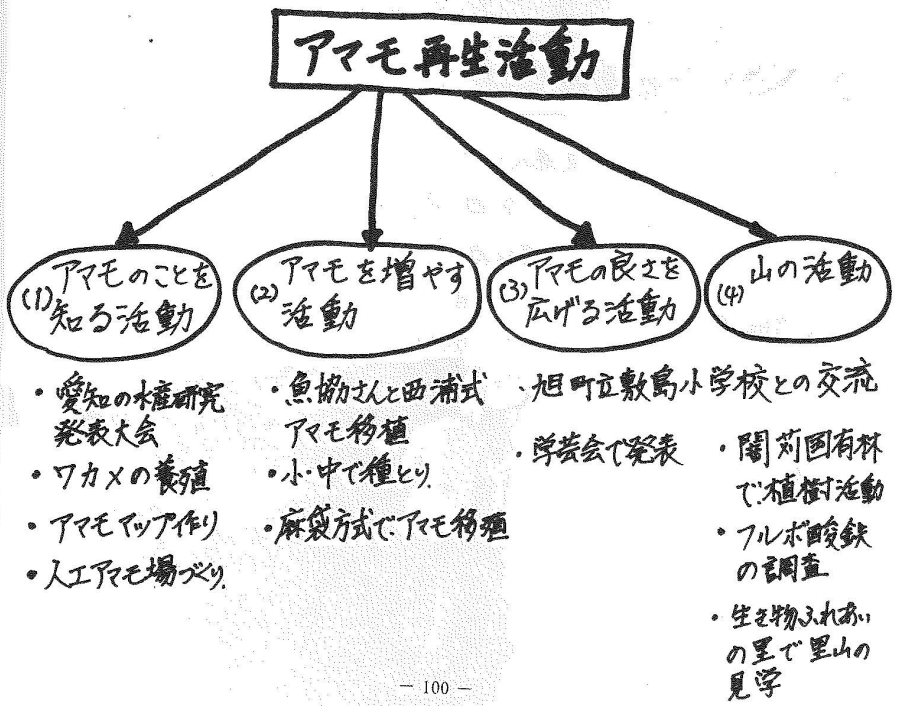 アマモ再生活動
(1)アマモのことを
知る活動
(2)アマモを増やす
活動
(3)アマモの良さを
広げる活動
(4)山の活動
・愛知の水産研究
発表大会
・ワカメの養殖
・アマモマップ作り
・人工アマモ場づくり.
・魚協さんと西浦式
アマモ移植
・小・中で種とり.
・麻袋方式でアマモ移殖
・旭町立敷島小学校との交流
・学芸会で発表
・闇苅国有林
で植樹活動
・フルボ酸鉄
の調査
・生き物ふれあい
の里で里山の
見学
— 100 —